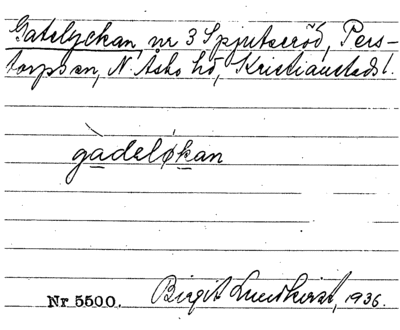 Gatelyckan, nr 3 Spjutseröd, Pers-
torps sn, N. Åsbo hd, Kristianstads l.
gàdeløkan
Nr 5500. Birgit Lundkvist, 1936.